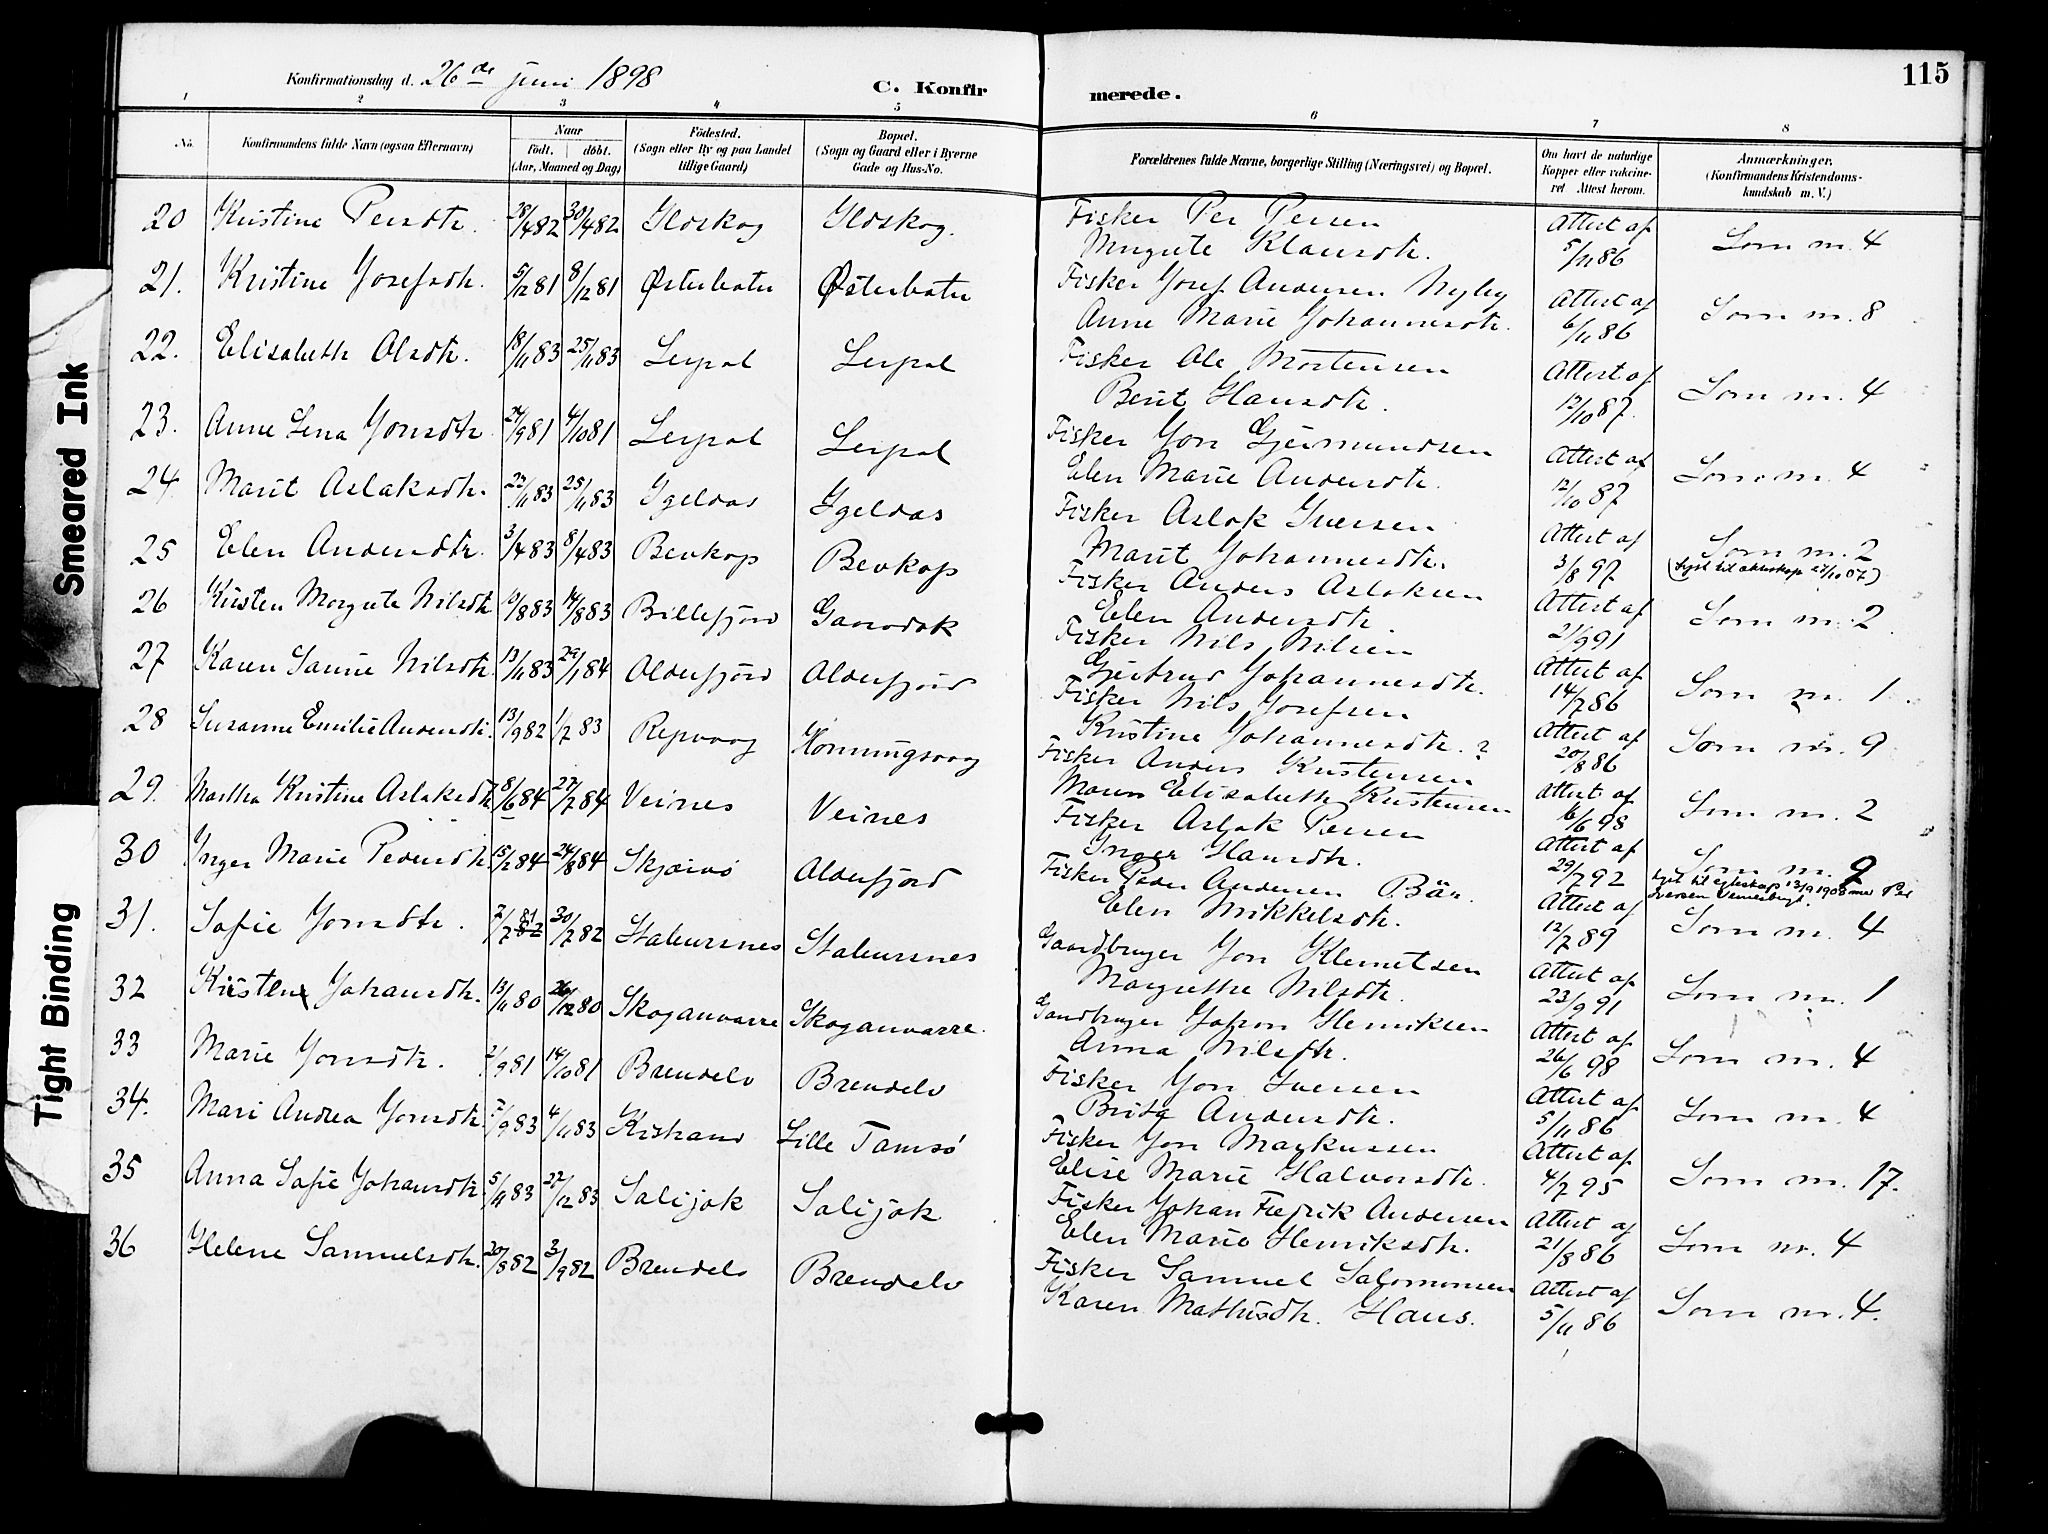 115
Konfirmationsdag d. 26de juni 1898
C. Konfirmerede.
1 2 3 4 5 6 7 8
No.
Konfirmandens fulde Navn (ogsaa Efternavn)
Naar
födt. döbt.
(Aar, Maaned og Dag)
Födested.
(Sogn eller By og paa Landet
tillige Gaard)
Bopæl.
(Sogn og Gaard eller i Byerne
Gade og Hus-No.
Forældrenes fulde Navne, borgerlige Stilling (Næringsvei) og Bopæl.
Om havt de naturlige
Kopper eller vakcine-
ret Attest herom.
Anmærkninger.
(Konfirmandens Kristendoms-
kundskab m. V.)
20 Kristine Persdtr. 28/4 82 30/4 82 Ildskog Ildskog. Fisker Per Persen Attest af Som nr. 4
Margrete Klausdtr. 5/11 86
21. Kristine Josefsdtr. 5/12 81 8/12 81 Østerbotn Østerbotn Fisker Josef Andersen Nyby Attest af Som nr. 8
Anne Marie Johannesdtr. 6/11 86
22. Elisabeth Olsdtr. 18/11 83 25/11 83 Leirpol Leirpol Fisker Ole Mortensen Attest af Som nr. 4
Berit Hansdtr. 12/10 87.
23. Anne Lena Jonsdtr. 24/9 81 4/10 81 Leirpol Leirpol Fisker Jon Gjermundsen Attest af Som nr. 4
Elen Marie Andersdtr. 12/10 87
24 Marit Aslaksdtr. 23/11 83 25/11 83 Igeldas Igeldas Fisker Aslak Iversen Attest af Som nr. 2
Marit Johannesdtr. 3/8 97 (lyst til ekteskap 27/10 07)
25 Elen Andersdtr. 3/4 83 8/4 83 Bevkop Bevkop Fisker Anders Aslaksen Attest af Som nr. 2
Elen Andersdtr. 21/9 91
26 Kirsten Margrete Nilsdtr 10/8 83 14/8 83 Billefjord Fisker Nils Nilsen Attest af Som nr. 1
Gjertrud Johannesdtr. 14/7 86
27 Karen Sanne Nilsdtr. 13/11 83 29/1 84 Oldefjord Oldefjord Fisker Nils Josefsen Attest af Som nr. 9
Kristine Johannesdtr. ? 20/8 86
28 Susanne Emilie Andersdtr. 13/9 82 1/7 83 Repvaag Honningsvaag Fisker Anders Kristensen Attest af Som nr. 2
Maren Elisabeth Kristensen 6/6 98
29. Martha Kristine Aslaksdtr 8/6 84 27/7 84 Veines Veines Fisker Aslak Persen Attest af Som nr. 2
Inger Hansdtr. 29/7 92 lyst til ekteskap 13/9 1908 med Per Iversen
30 Inger Marie Pedersdtr. 15/2 84 24/8 84 Skjærvø Oldefjord Fisker Peder Andersen Bär. Attest af Som nr. 4
Elen Mikkelsdtr. 12/7 89
31. Sofie Jonsdtr. 2/7 81 82 30/7 82 Stabursnes Stabursnes Gaardbruger Jon Klemetsen Attest af Som nr. 1
Margrethe Nilsdtr. 23/9 91
32 Kirsten Johansdtr. 13/11 80 26/12 80 Skoganvarre Skoganvarre. Gaardbruger Johan Henriksen Attest af Som nr. 4
Anna Nilsdtr. 26/6 98
33 Marie Jonsdtr. 2/9 81 14/10 81 Brendelv Brendelv Fisker Jon Iversen Attest af Som nr. 4
Brita Andersdtr. 5/11 86
34. Mari Andrea Jonsdtr. 7/9 83 4/11 83 Kistrand Lille Tamsø Fisker Jon Markussen Attest af Som nr. 17.
Elise Marie Halvorsdtr. 4/7 95
35 Anna Sofie Johansdtr. 5/11 83 22/12 83 Salijok Salijok Fisker Johan Fredrik Andersen Attest af Som nr. 4
Elen Marie Henriksdtr. 21/8 86
36 Helene Samuelsdtr. 20/8 82 3/9 82 Brendelv Brendelv Fisker Samuel Salomonsen Attest af Som nr. 4.
Karen Mathisdtr. Hans. 5/11 86
Smeared Ink
Tight Binding